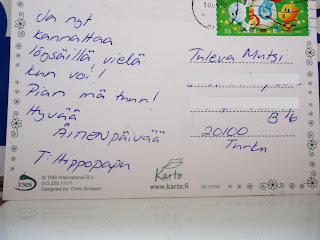 Ja nyt
kannattaa
löysäillä vielä
kun voi!
Pian mä tuun!
Hyvää
Äitienpäivää
T: Hippopapu
Tuleva Mutsi
B 16
20100
Turku
TMS
© TMS International B.V.
Designed by: Chris Simpson
Karto
www.karto.fi